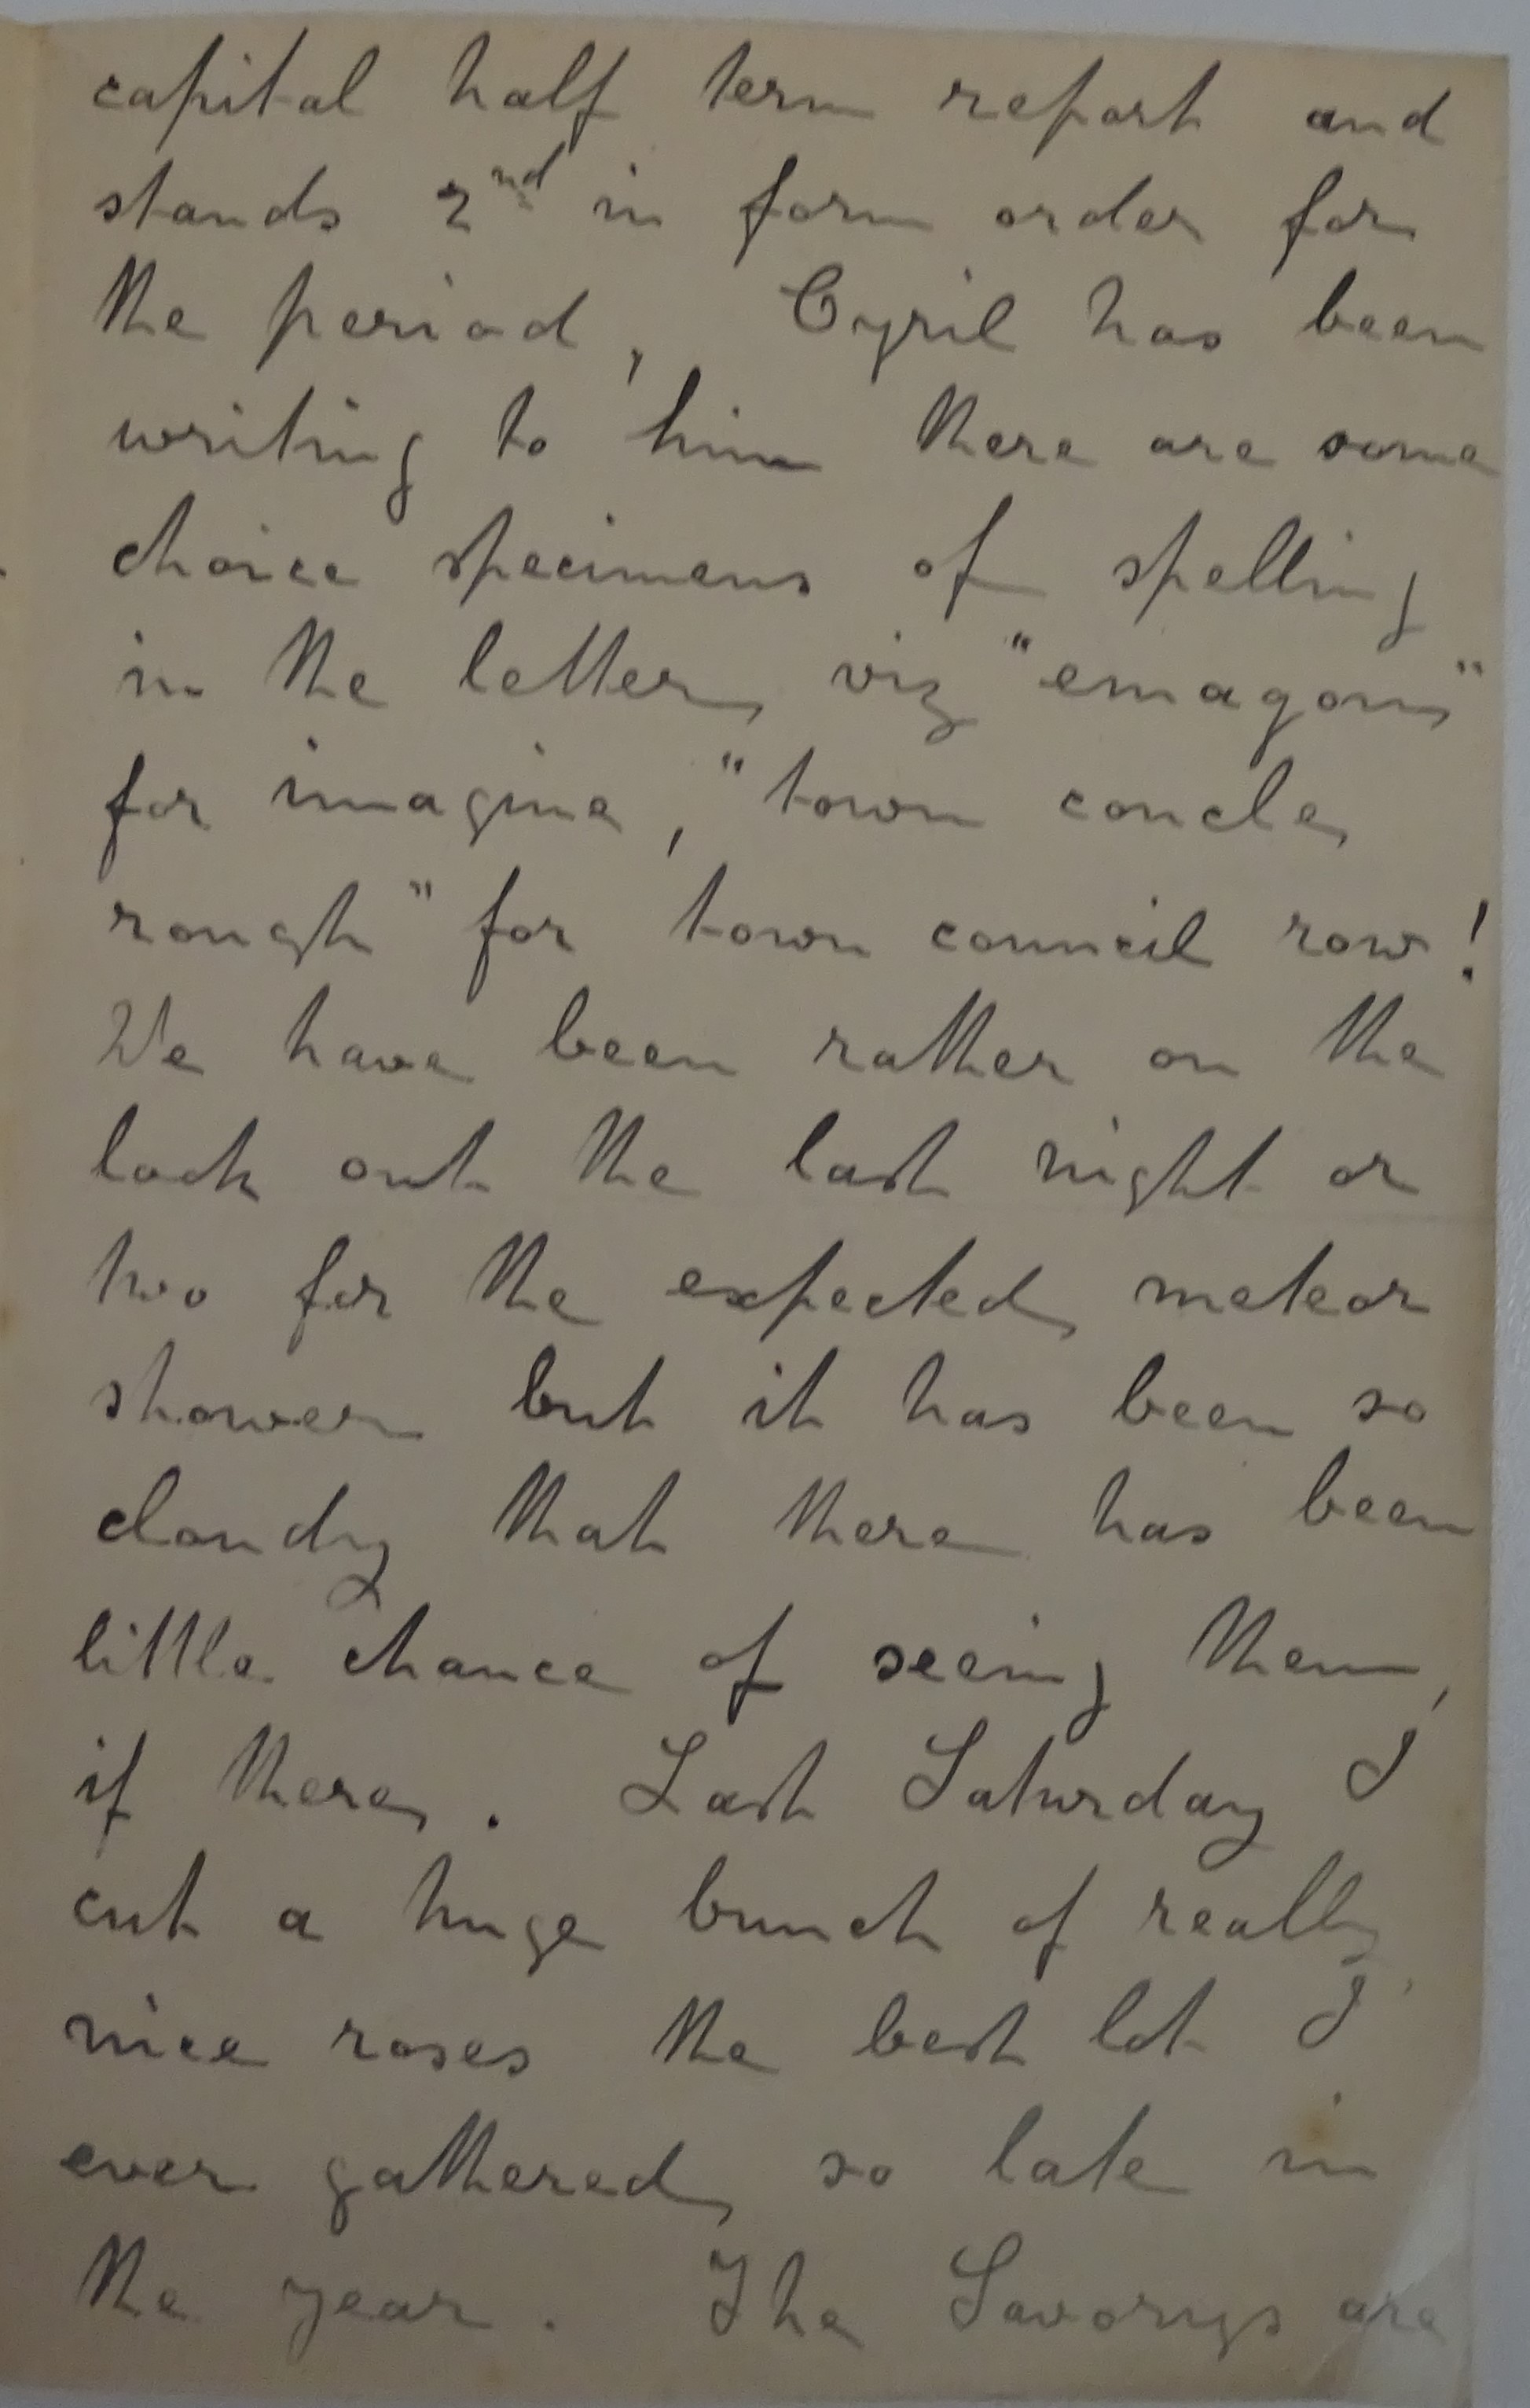 capital half term report and
stands 2nd in form order for
the period, Cyril has been
writing to him there are some
choice specimens of spelling
in the letter, viz "emagon"
for imagine, "town concle
rough" for town council row!
We have been rather on the
look out the last night or
two for the expected meteor
shower but it has been so
cloudy that there has been
little chance of seeing them,
if there. Last Saturday I
cut a huge bunch of really
nice roses the best lot I
ever gathered so late in
the year. The Savorys are